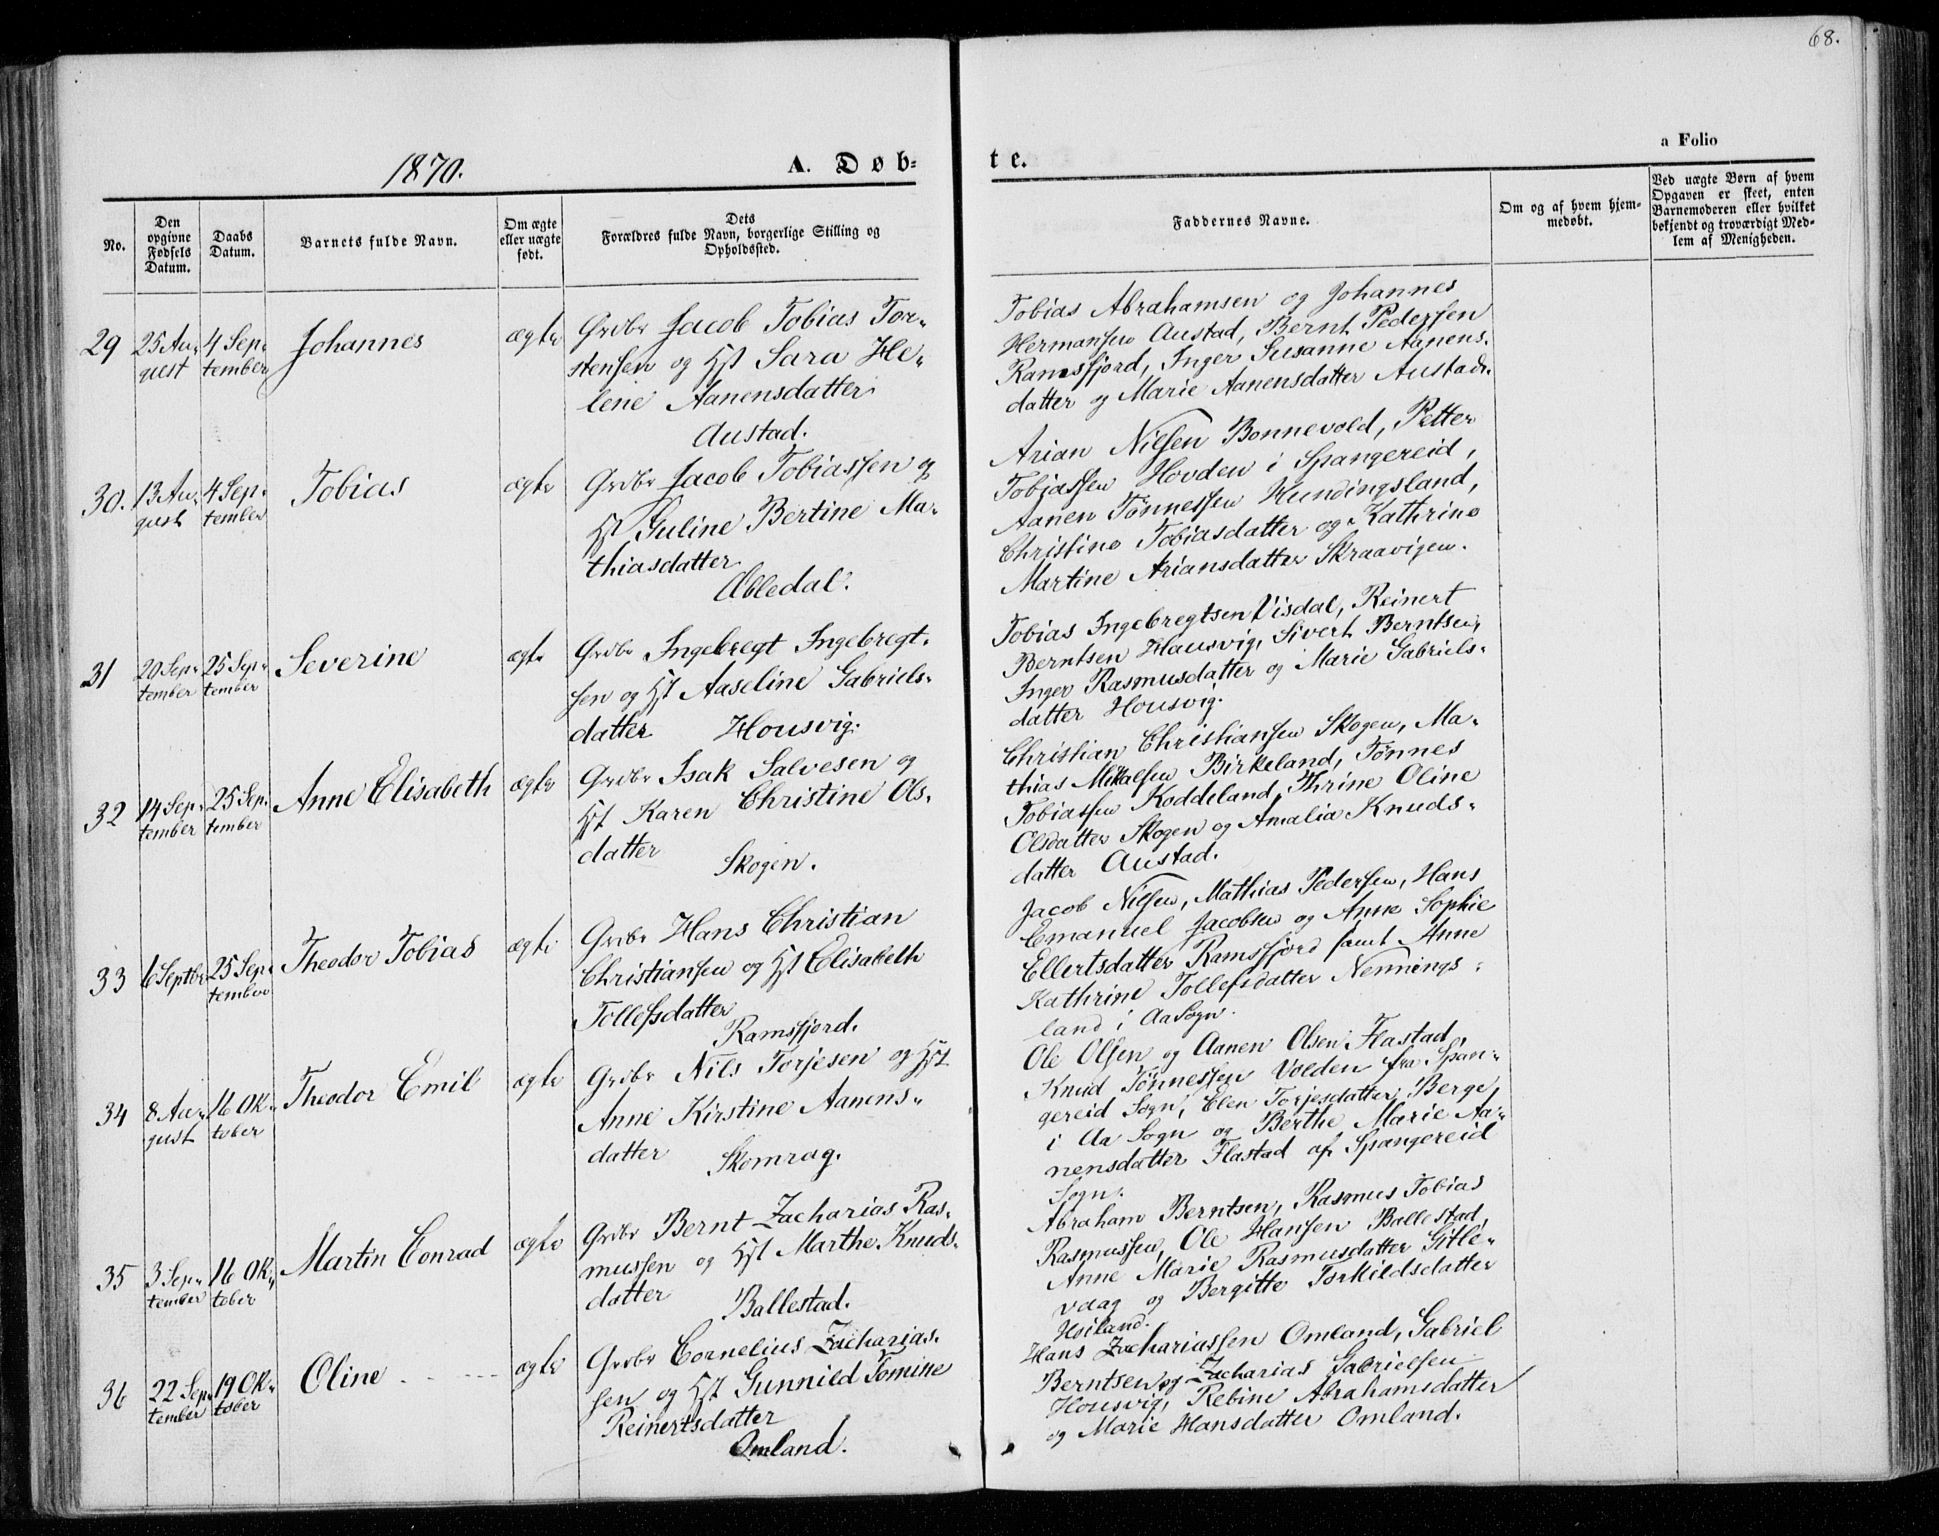 68.
a Folio
1870.
A. Døb-
te.
No.
Den opgivne Fødsels Datum.
Daabs Datum.
Barnets fulde Navn.
Om ægte eller uægte født.
Dets Forældres fulde Navn, borgerlige Stilling og Opholdssted.
Faddernes Navne.
Om og af hvem hjemmedøbt.
Ved uægte Børn af hvem Opgaven er skeet, enten Barnemoderen eller hvilket bekjendt og troværdigt Medlem af Menigheden.
29
25 Au-
gust
4 Sep-
tember
Johannes
ægte
Grdbr Jacob Tobias Tor-
stensen og Hst Sara He-
lene Aanensdatter
Austad.
Tobias Abrahamsen og Johannes
Hermansen Austad, Bernt Pedersen
Ramsfjord, Inger Susanne Aanens-
datter og Marie Aanensdatter Austad.
30.
13 Au-
gust
4 Sep-
tember
Tobias
ægte
Grdbr Jacob Tobiassen og
Hst Guline Bertine Ma-
thiasdatter
Æbledal.
Arian Nilsen Bonnevold, Petter
Tobiassen Hovden i Spangereid,
Aanen Tønnessen Hundingsland,
Christine Tobiasdatter og Kathrine
Martine Ariansdatter Skraavigen.
31
20 Sep-
tember
25 Sep-
tember
Severine
ægte
Grdbr Ingebregt Ingebregt-
sen og Hst Aaseline Gabriels-
datter Housvig.
Tobias Ingebregtsen Visdal, Reinert
Berntsen Hausvig, Sivert Berntsen,
Inger Rasmusdatter og Marie Gabriels-
datter Housvig.
32
14 Sep-
tember
25 Sep-
tember
Anne Elisabeth
ægte
Grdbr Isak Salvesen og
Hst Karen Christine Ols-
datter
Skogen.
Christian Christiansen Skogen, Ma-
thias Mikalsen Birkeland, Tønnes
Tobiassen Koddeland, Thrine Oline
Olsdatter Skogen og Amalia Knuds-
datter Austad.
33
6 Septbr
25 Sep-
tember
Theodor Tobias
ægte
Grdbr Hans Christian
Christiansen og Hst Elisabeth
Tollefsdatter
Ramsfjord.
Jacob Nilsen, Mathias Pedersen, Hans
Emanuel Jacobsen og Anne Sophie
Ellertsdatter Ramsfjord samt Anne
Kathrine Tollefsdatter Nennings-
land i Aa Sogn.
34
8 Au-
gust
16 Ok-
tober
Theodor Emil
ægte
Grdbr Nils Torjesen og Hst
Anne Kirstine Aanens-
datter
Skomrag.
Ole Olsen og Aanen Olsen Flastad,
Knud Tønnessen Volden fra Span-
gereid Sogn, Elen Torjesdatter Berge
i Aa Sogn og Berthe Marie Aa-
nensdatter Flastad af Spangereid
Sogn.
35
3 Sep-
tember
16 Ok-
tober
Martin Conrad
ægte
Grdbr Bernt Zacharias Ras-
mussen og Hst Marthe Knuds-
datter
Ballestad.
Abraham Berntsen, Rasmus Tobias
Rasmussen, Ole Hansen Ballestad,
Anne Marie Rasmusdatter Gitle-
vaag og Bergitte Torkildsdatter
Høiland.
36
22 Sep-
tember
19 Ok-
tober
Oline
ægte
Grdbr Cornelius Zacharias-
sen og Hst Gunnild Tomine
Reinertsdatter
Omland.
Hans Zachariassen Omland, Gabriel
Berntsen og Zacharias Gabrielsen
Housvig, Rebine Abrahamsdatter
og Marie Hansdatter Omland.